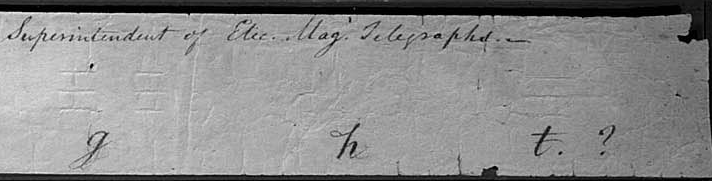 Superintendent of Elec. Mag. Telegraphs.—
g h t. ?